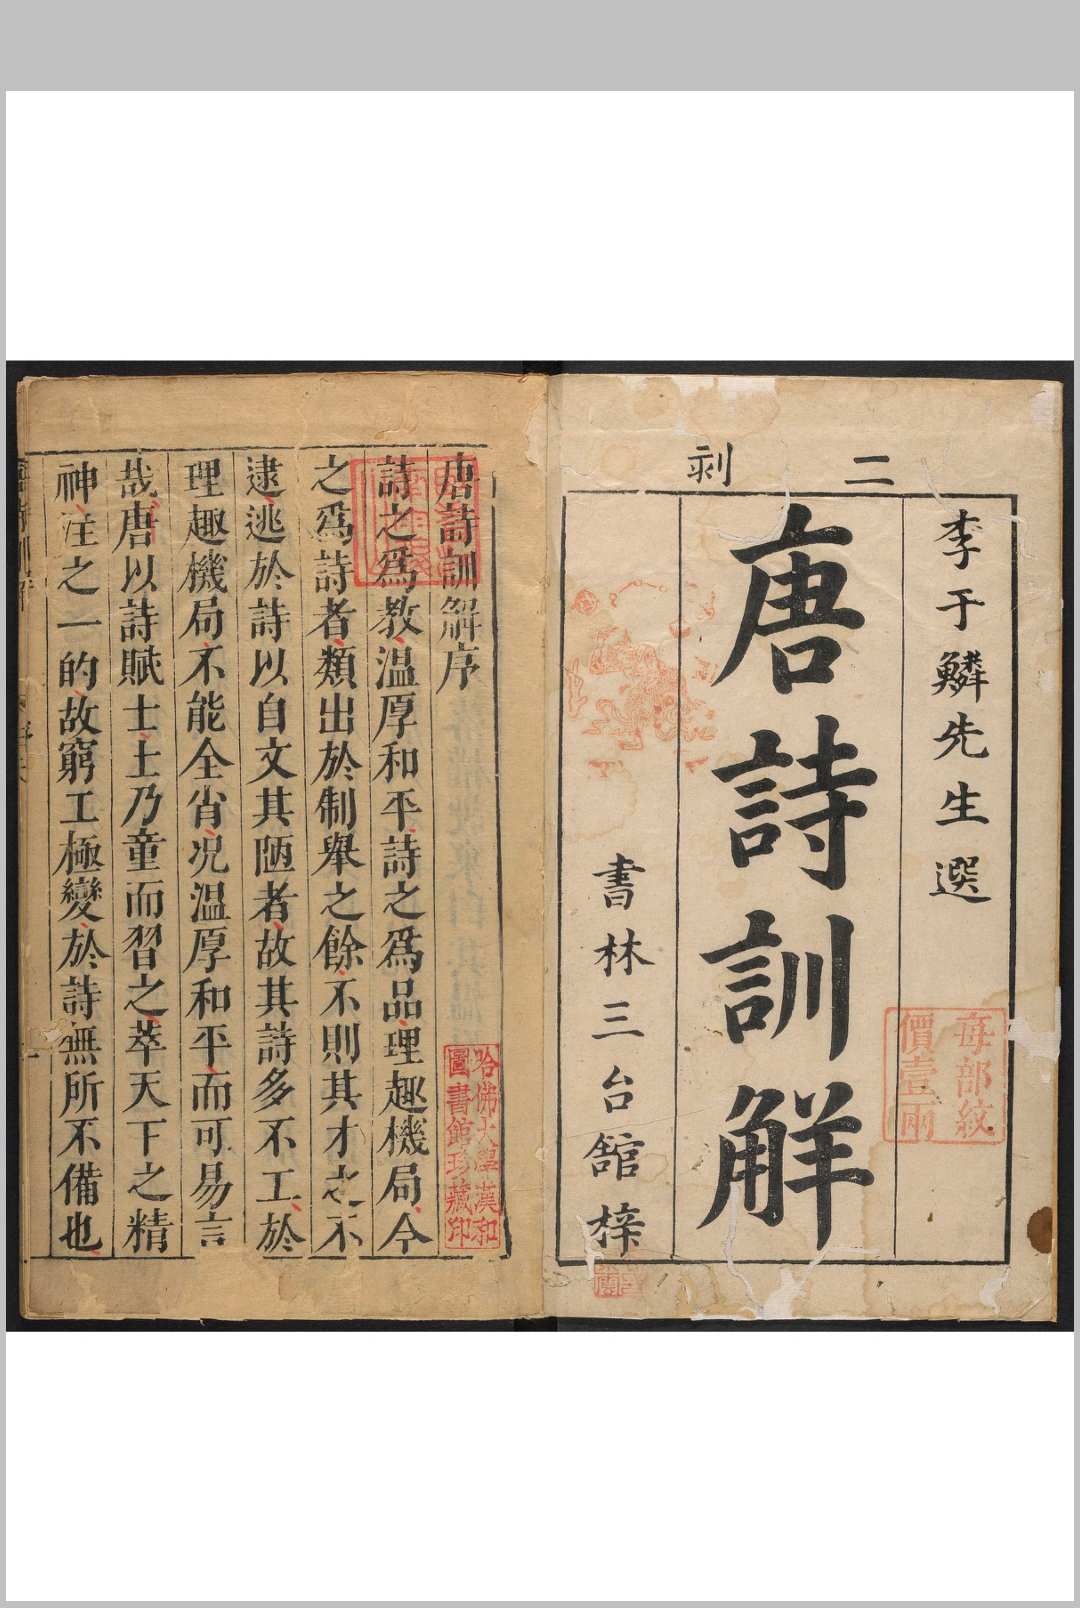 二刻
李于鱗先生選
唐詩訓解
書林三台舘梓
每部紋
價壹兩
唐詩訓解序
詩之爲教温厚和平詩之爲品理趣機局今
之爲詩者類出於制舉之餘不則其才之不
逮逃於詩以自文其陋者故其詩多不工於
理趣機局不能全省况温厚和平而可易言
哉唐以詩賦士士乃童而習之萃天下之精
神注之一的故窮工極變於詩無所不備也
哈佛大學漢和
圖書館珍藏印